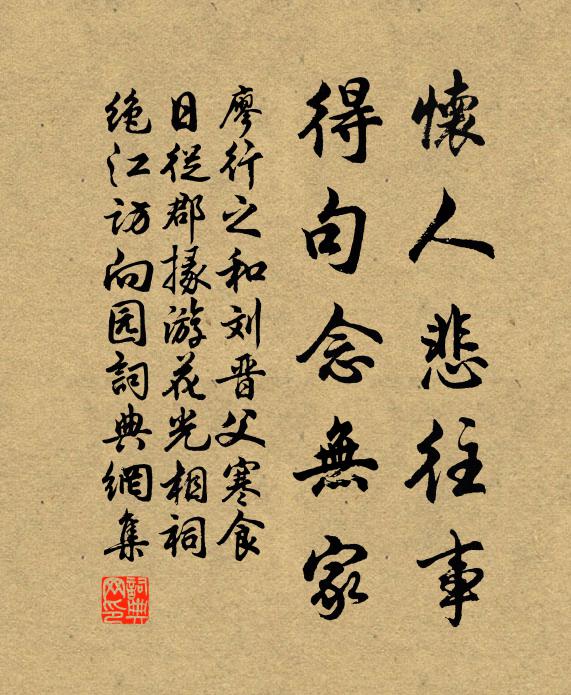 懷人悲往事
得句念無家
廖行之和刘晋父寒食
日從郡掾游花光相祠
絶江訪向园詞典網集
詞典網印